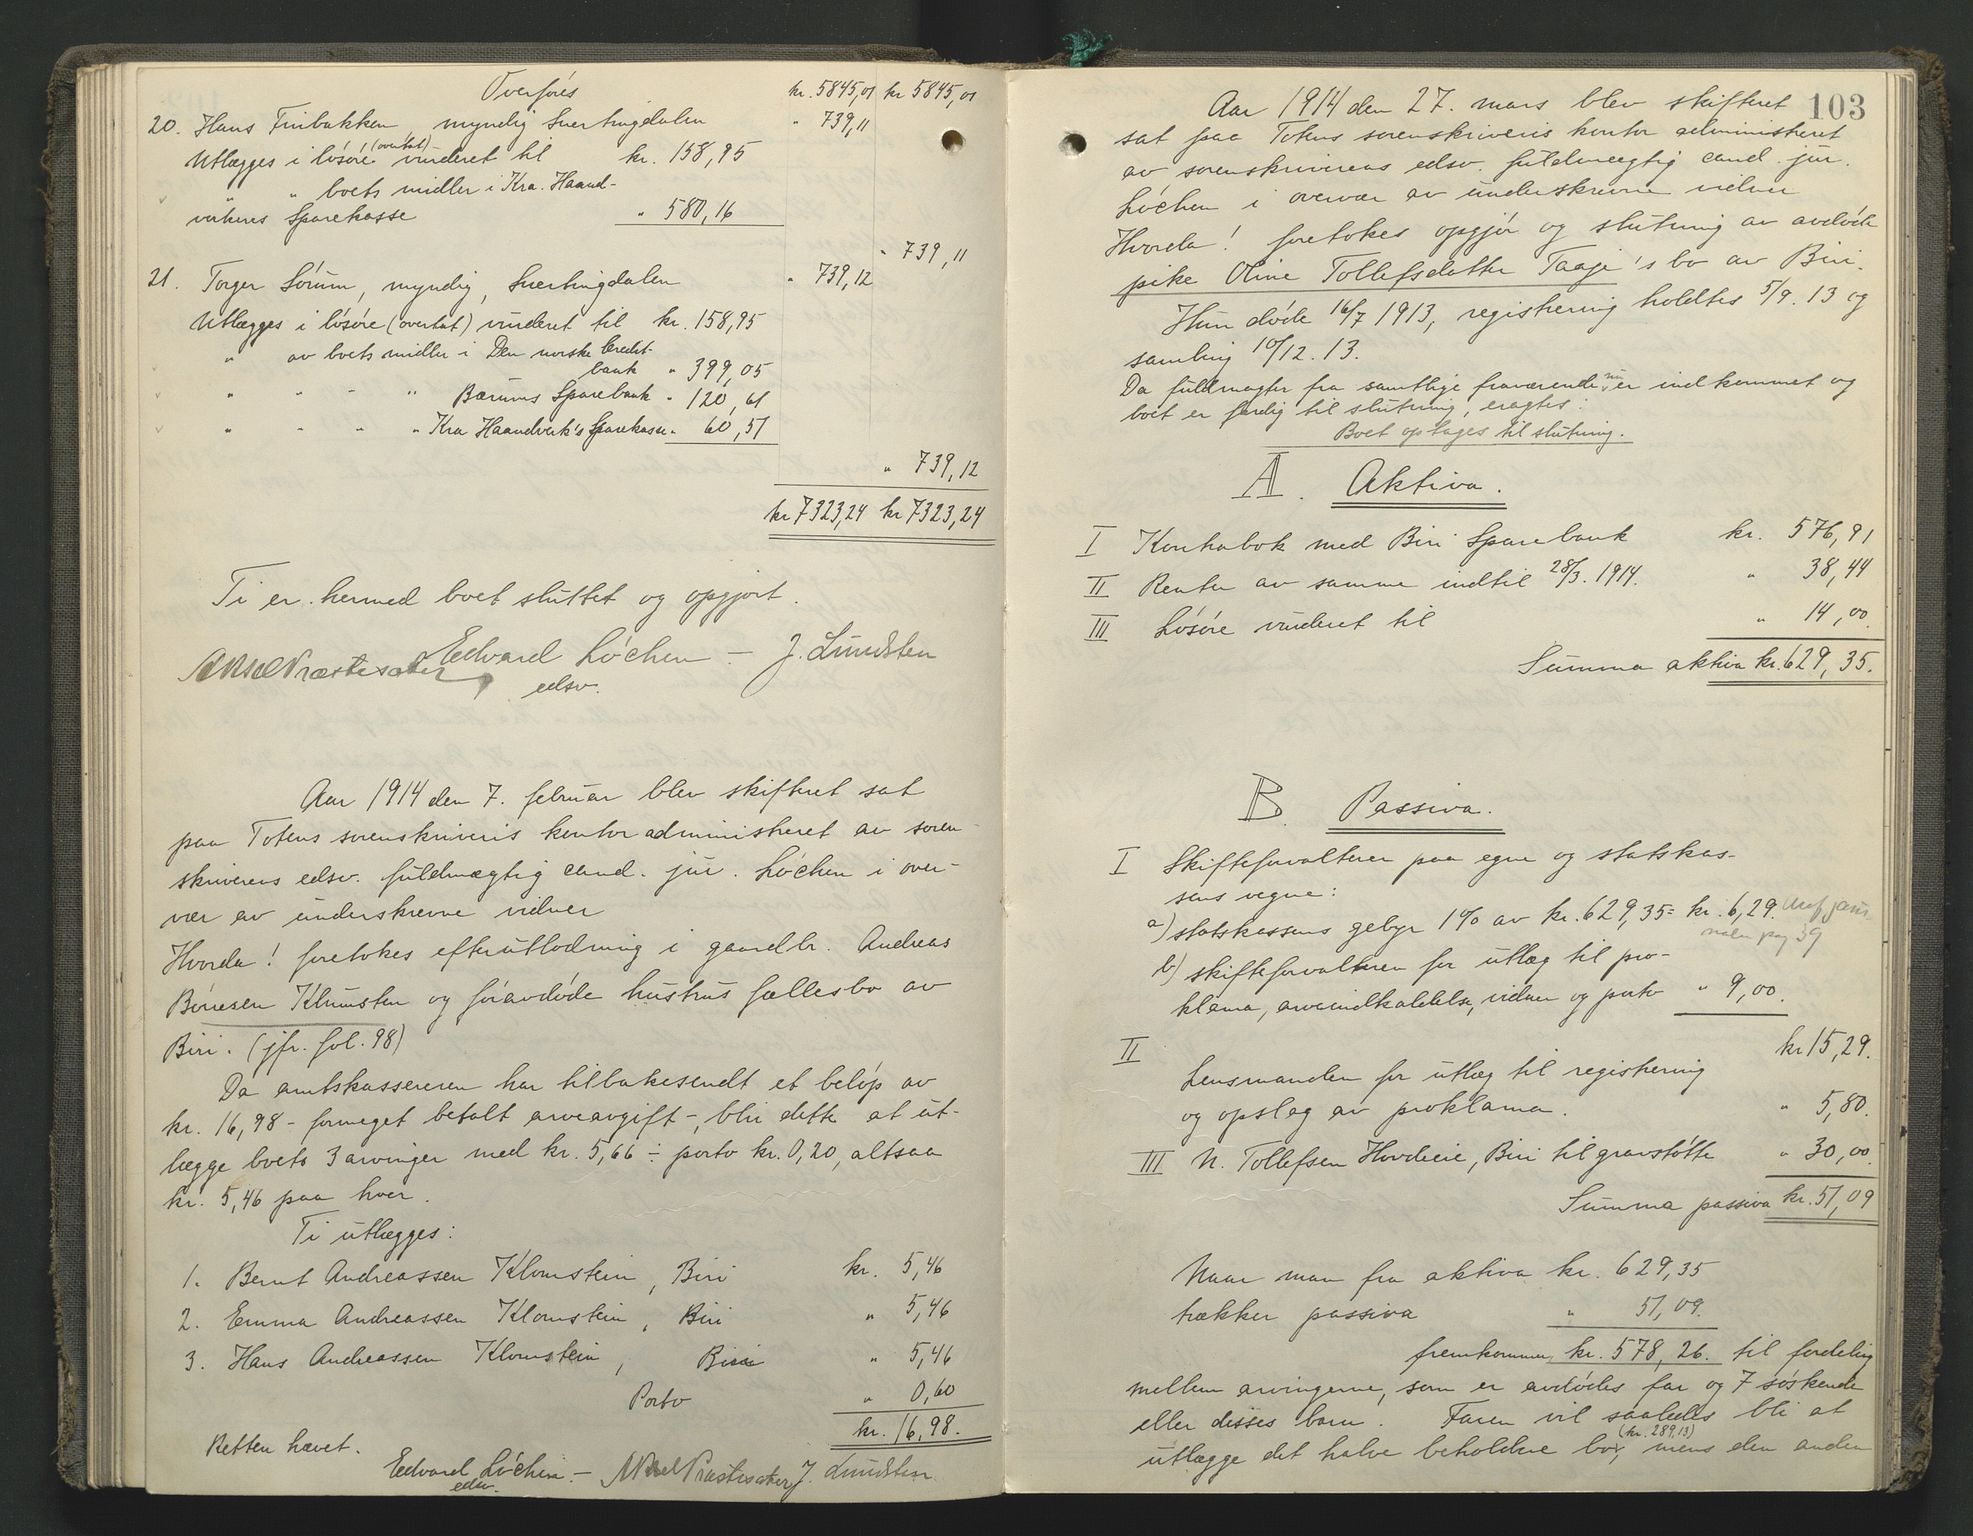 Overføres kr. 5845,01 kr 5845,01
20. Hans Finbakken, myndig Snertingdalen " 739,11
Utlægges i løsøre (overtat) vurderet til kr. 158,95
" " boets midler i Kra. Haand-
verkeres Sparekasse " 580,16
" 739,11
21. Torger Sørum, myndig, Snertingdalen " 739,12
Utlægges i løsøre (overtat) vurderet til kr. 158,95
" av boets midler i Den norske Credit-
bank " 399,05
" " " " Bærums Sparebank " 120,61
" " " " Kra Haandverk's Sparekasse " 60,51
" 739,12
kr 7323,24 kr 7323,24
Ti er hermed boet sluttet og opgjort.
Aksel Præstesæter Edvard Løchen – J. Lundsten
edsv.
Aar 1914 den 7. februar blev skifteret sat
paa Totens sorenskriveris kontor administreret av soren-
skriverens edsv. fuldmægtig cand. jur. Løchen i over-
vær av underskrevne vidner
Hvorda! foretokes efterutlodning i gaardbr. Andreas
Børresen Klumsten og føravdøde hustrus fællesbo av
Biri. (jfr. fol. 98)
Da amtskassereren har tilbakesendt et beløp av
kr. 16,98 – formeget betalt arveavgift –, blir dette at ut-
lægge boets 3 arvinger med kr. 5,66 ÷ porto kr. 0,20, altsaa
kr. 5,46 paa hver.
Ti utlægges:
1. Bernt Andreassen Klomstein, Biri kr. 5,46
2. Emma Andreassen Klomstein, Biri " 5,46
3. Hans Andreassen Klomstein, Biri " 5,46
Porto " 0,60
kr. 16,98.
Retten hævet.
Edvard Løchen – Aksel Præstesæter J. Lundsten
edsv.
103
Aar 1914 den 27. mars blev skifteret
sat paa Totens sorenskriveris kontor administreret
av sorenskriverens edsv. fuldmægtig cand. jur.
Løchen i overvær av underskrevne vidner
Hvorda! foretokes opgjør og slutning av avdøde
pike Oline Tollefsdatter Taaje's bo av Biri.
Hun døde 16/7 1913, registrering holdtes 5/9. 13 og
samling 10/12. 13.
Da fuldmagter fra samtlige fraværende nu er indkommet og
boet er færdig til slutning, eragtes:
Boet optages til slutning.
A. Aktiva.
I Kontrabok med Biri Sparebank kr. 576,91
II Renter av samme indtil 28/3. 1914. " 38,44
III Løsøre vurderet til " 14,00
Summa aktiva kr. 629,35.
B. Passiva.
I Skifteforvalteren paa egne og statskas-
sens vegne:
a) statskassens gebyr 1% av kr. 629,35 = kr. 6,29.
pag 39
b) skifteforvalteren for utlæg til pro-
klama, arveindkaldelse, vidner og porto " 9,00.
kr 15,29.
II Lensmanden for utlæg til registrering
og opslag av proklama. " 5,80.
III N. Tollefsen Hovdieie, Biri til gravstøtte " 30,00
Summa passiva kr. 51,09
Naar man fra aktiva kr. 629,35
trækker passiva " 51,09.
fremkommer kr. 578,26. til fordeling
mellem arvingerne, som er avdødes far og 7 søskende
eller disses barn. Faren vil saaledes bli at
utlægge det halve beholdne bo, (kr. 289,13) mens den anden